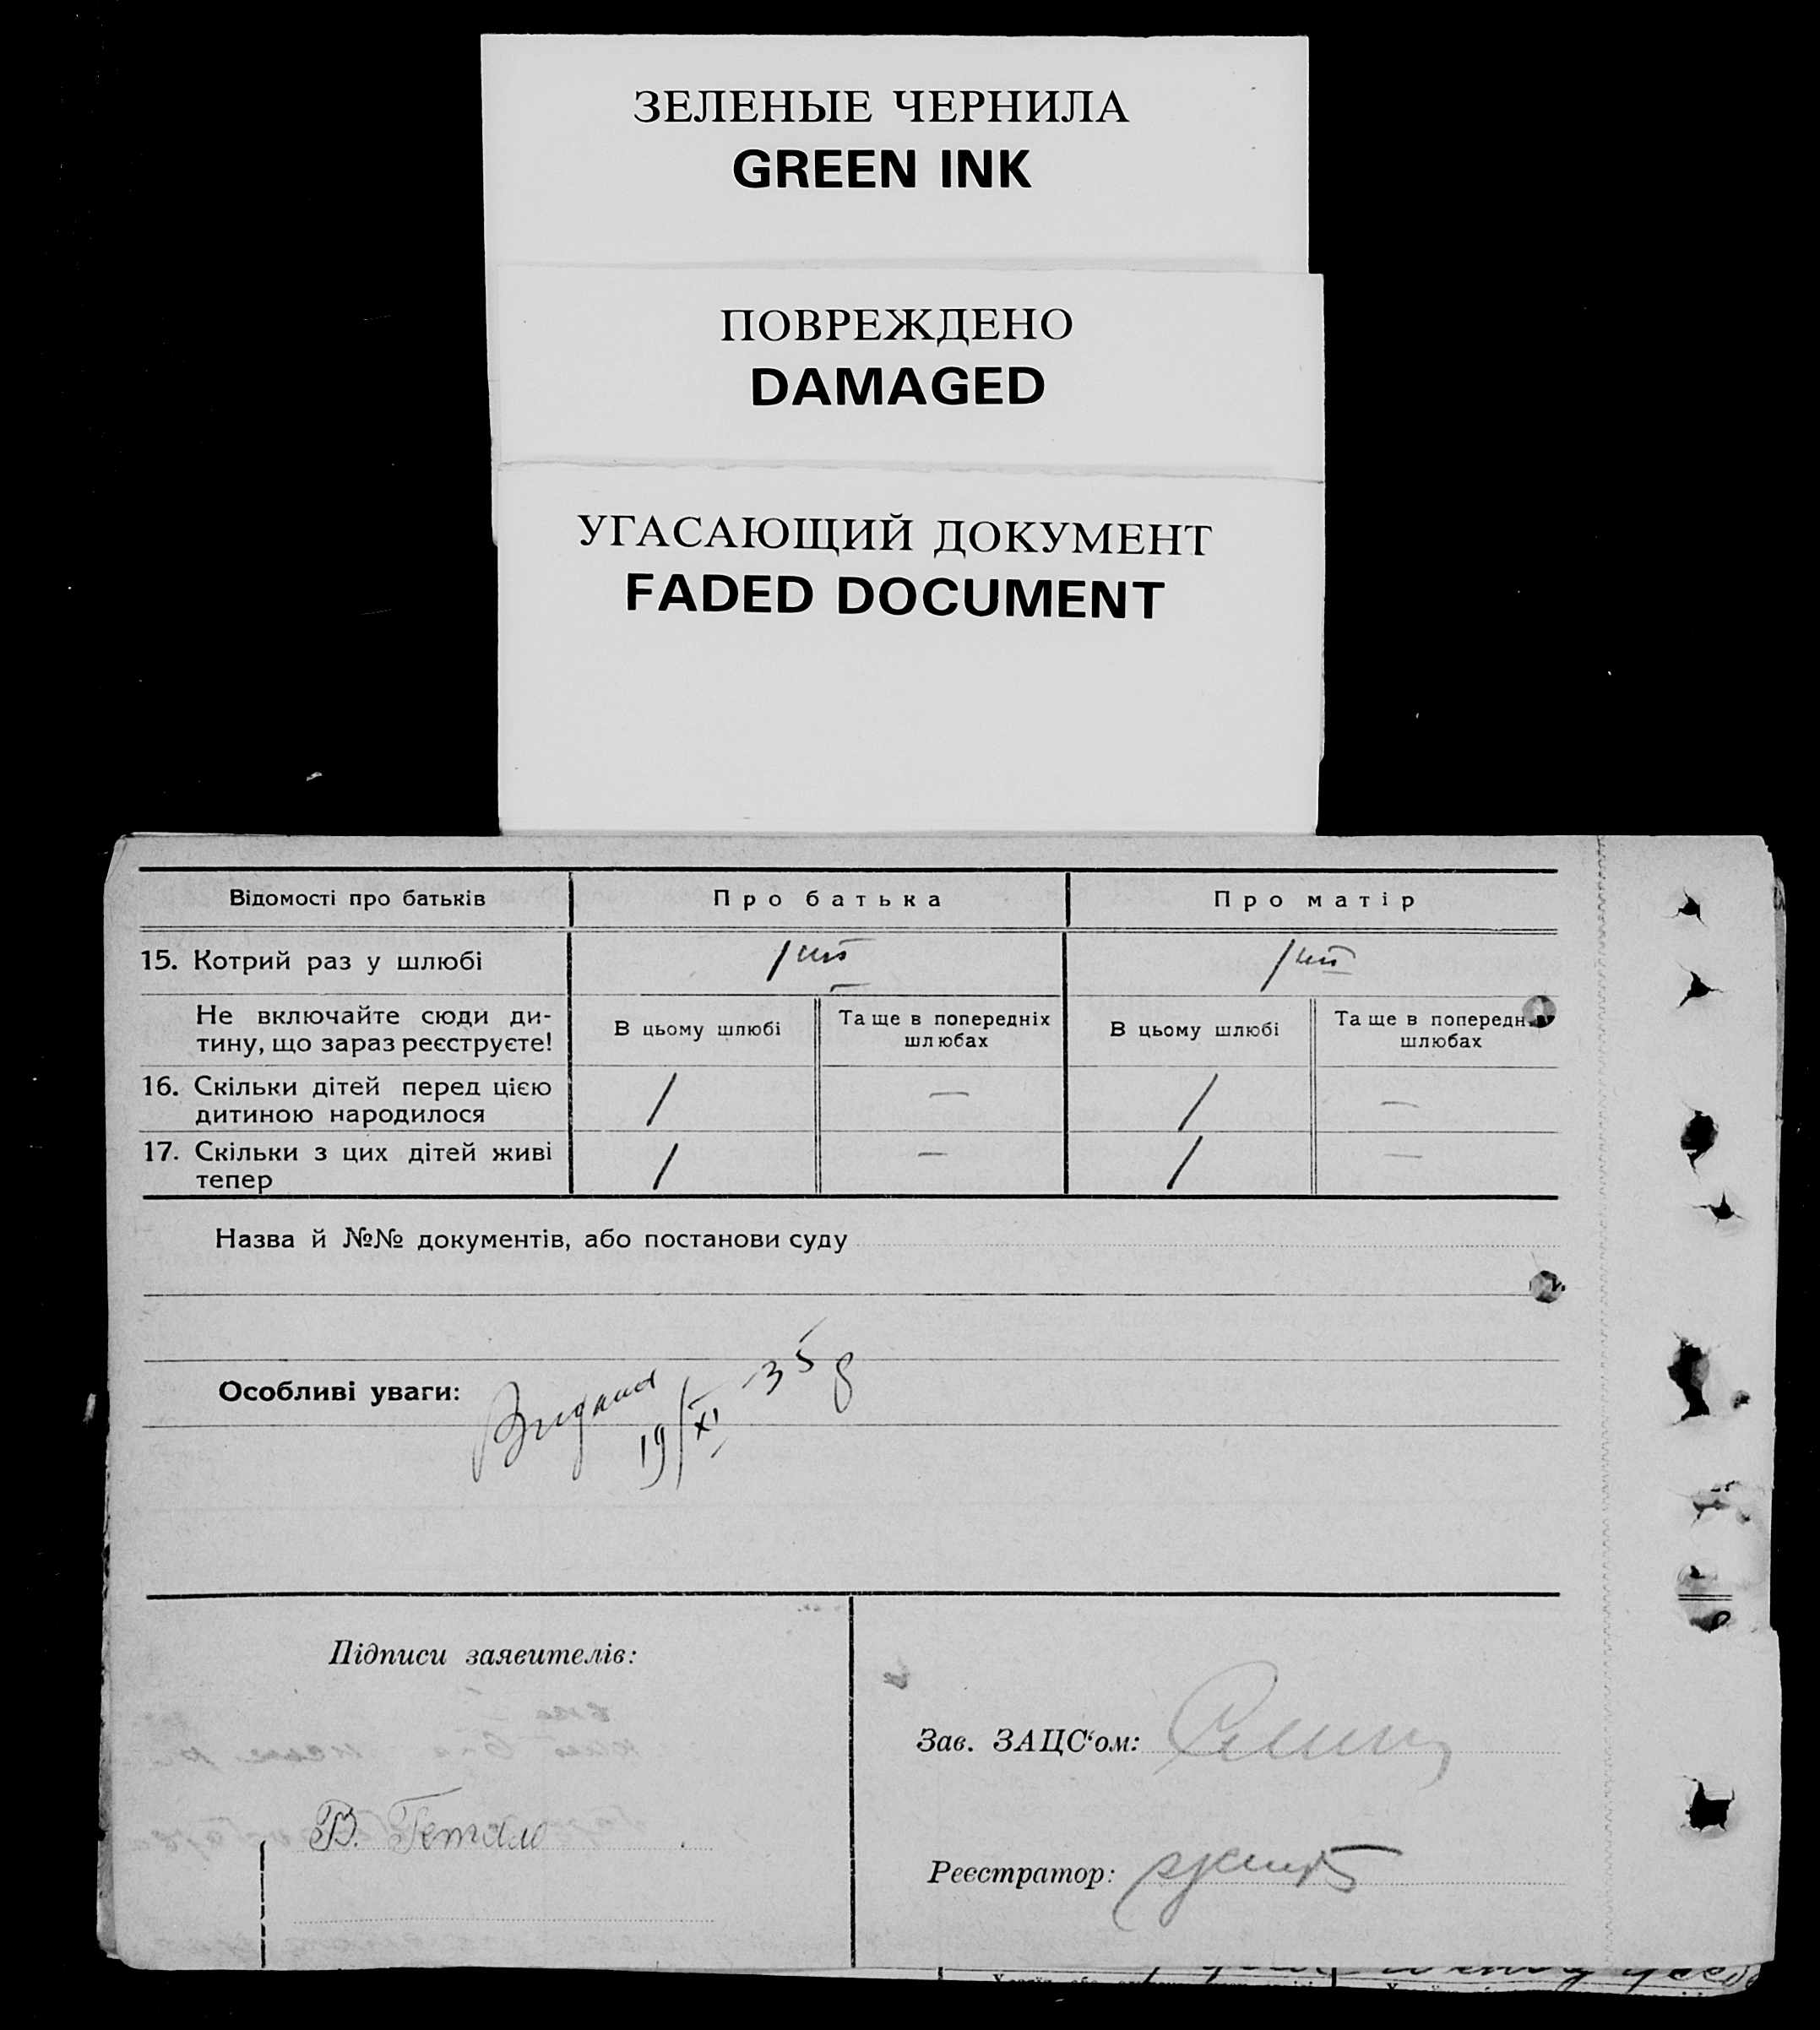 ЗЕЛЕНЫЕ ЧЕРНИЛА
GREEN INK
ПОВРЕЖДЕНО
DAMAGED
УГАСАЮЩИЙ ДОКУМЕНТ
FADED DOCUMENT
Відомості про батьків Про батька Про матір
15. Котрий раз у шлюбі
Не включайте сюди ди-
тину, що зараз реєструєте!
В цьому шлюбі
Та ще в попередніх
шлюбах
В цьому шлюбі
Та ще в попередн
шлюбах
16. Скільки дітей перед цією
дитиною народилося
/ — / —
17. Скільки з цих дітей живі
тепер
/ — / —
Назва й №№ документів, або постанови суду
Особливі уваги:
19/XI 35
Підписи заявителів:
В.
Зав. ЗАЦС‘ом:
Реєстратор: